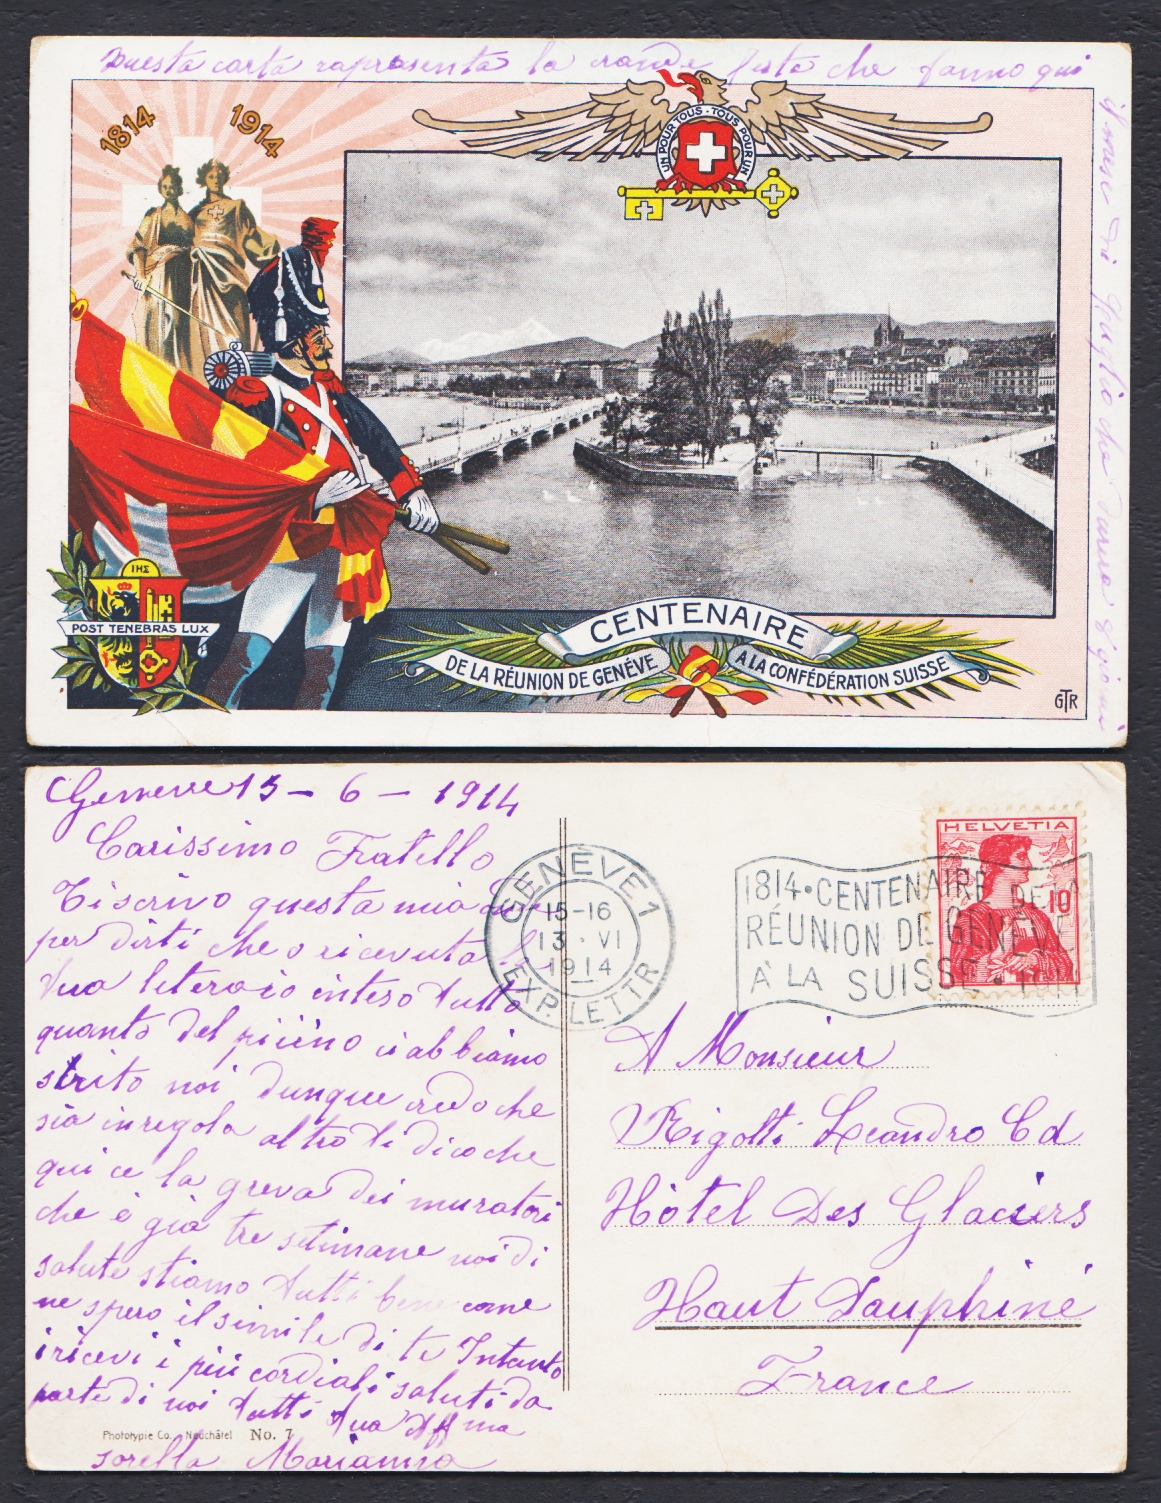 Questa carta rapresenta la grande festa che fanno qui
il mese di Luglio che durera 8 giorni
1814
1914
UN POUR TOUS · TOUS POUR UN
IHΣ
POST TENEBRAS LUX
CENTENAIRE
DE LA RÉUNION DE GENÉVE A LA CONFÉDÉRATION SUISSE
GTR
Geneve 13 - 6 - 1914
Carissimo Fratello
Ti scrivo questa mia
per dirti che o ricevuta la
tua letera io inteso tutto
quanto del abbiamo
scrito noi dunque credo che
sia in regola altro ti dico che
qui ce la greva dei muratori
che è già tre setimane noi di
salute stiamo tutti bene come
ne spero il simile di te Intanto
i ricevi i più cordiali saluti da
parte di noi tutti tua Aff ma
sorella Marianna
Phototypie Co., Neuchâtel No. 7
GENÈVE 1
15-16
13 · VI
1914
EXP. LETTR
1814 · CENTENAIRE DE LA
RÉUNION DE GENÈVE
À LA SUISSE · 1914
HELVETIA
10
A Monsieur
Rigotti Leandro Cd
Hôtel Des Glaciers
Haut Dauphiné
France